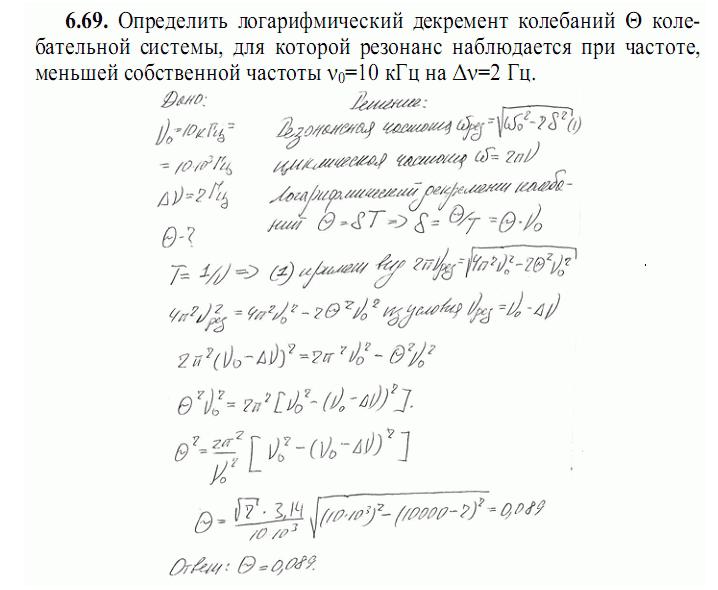 6.69. Определить логарифмический декремент колебаний Θ коле-
бательной системы, для которой резонанс наблюдается при частоте,
меньшей собственной частоты ν₀=10 кГц на Δν=2 Гц.
Дано: Решение:
ν₀=10кГц= Резонансная частота ωрез=√(ω₀²-2δ²) (1)
=10·10³Гц циклическая частота ω=2πν
Δν=2Гц Логарифмический декремент колеба-
Θ-? ний Θ=δT => δ=Θ/T=Θ·ν₀
T=1/ν => (1) примет вид 2πνрез=√(4π²ν₀²-2Θ²ν₀²)
4π²ν²рез=4π²ν₀²-2Θ²ν₀² из условия νрез=ν₀-Δν
2π²(ν₀-Δν)²=2π²ν₀²-Θ²ν₀²
Θ²ν₀²=2π²[ν₀²-(ν₀-Δν)²].
Θ²=2π²/ν₀² [ν₀²-(ν₀-Δν)²]
Θ=√2·3,14/10·10³ √((10·10³)²-(10000-2)²)=0,089
Ответ: Θ=0,089.